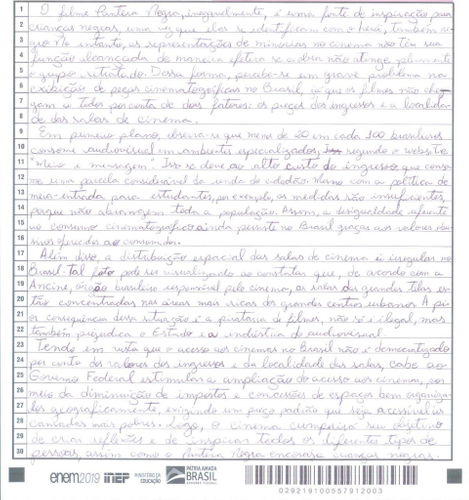 O filme Pantera Negra, inegavelmente, é uma fonte de inspiração para
crianças negras, uma vez que elas se identificam com o herói, também ne-
gro. No entanto, as representações de minorias no cinema não têm sua
função alcançada de maneira efetiva se a obra não atinge plenamente
o grupo retratado. Dessa forma, percebe-se um grave problema na
exibição de peças cinematográficas no Brasil, já que os filmes não che-
gam a todos por conta de dois fatores: os preços dos ingressos e a localida-
de das salas de cinema.
Em primeiro plano, observa-se que menos de 20 em cada 100 brasileiros
consome audiovisual em ambientes especializados, segundo o website
"meio e mensagem". Isso se deve ao alto custo do ingresso que conso-
me uma parcela considerável da renda do cidadão. Mesmo com a política de
meia-entrada para estudantes, por exemplo, as medidas são insuficientes,
porque não abrangem toda a população. Assim, a desigualdade referente
ao consumo cinematográfico ainda persiste no Brasil graças aos valores
ao consumidor.
Além disso, a distribuição espacial das salas de cinema é irregular no
Brasil. Tal fato pode ser visualizado ao constatar que, de acordo com a
Ancine, órgão brasileiro responsável pelo cinema, as salas das grandes telas es-
tão concentradas nas áreas mais ricas dos grandes centros urbanos. A pi-
or consequência dessa situação é a pirataria de filmes, não só é ilegal, mas
também prejudica o Estado e a indústria do audiovisual.
Tendo em vista que o acesso aos cinemas no Brasil não é democratizado
por conta dos valores dos ingressos e da localidade das salas, cabe ao
Governo Federal estimular a ampliação do acesso aos cinemas, por
meio da diminuição de impostos e concessões de espaços bem organiza-
dos geograficamente, exigindo um preço padrão que seja acessível às
camadas mais pobres. Logo, o cinema cumprirá seu objetivo
de criar reflexões e de inspirar todos os diferentes tipos de
pessoas, assim como o Pantera Negra encoraja crianças negras.
enem2019 INEP MINISTÉRIO DA EDUCAÇÃO PÁTRIA AMADA BRASIL GOVERNO FEDERAL
029219100557912003